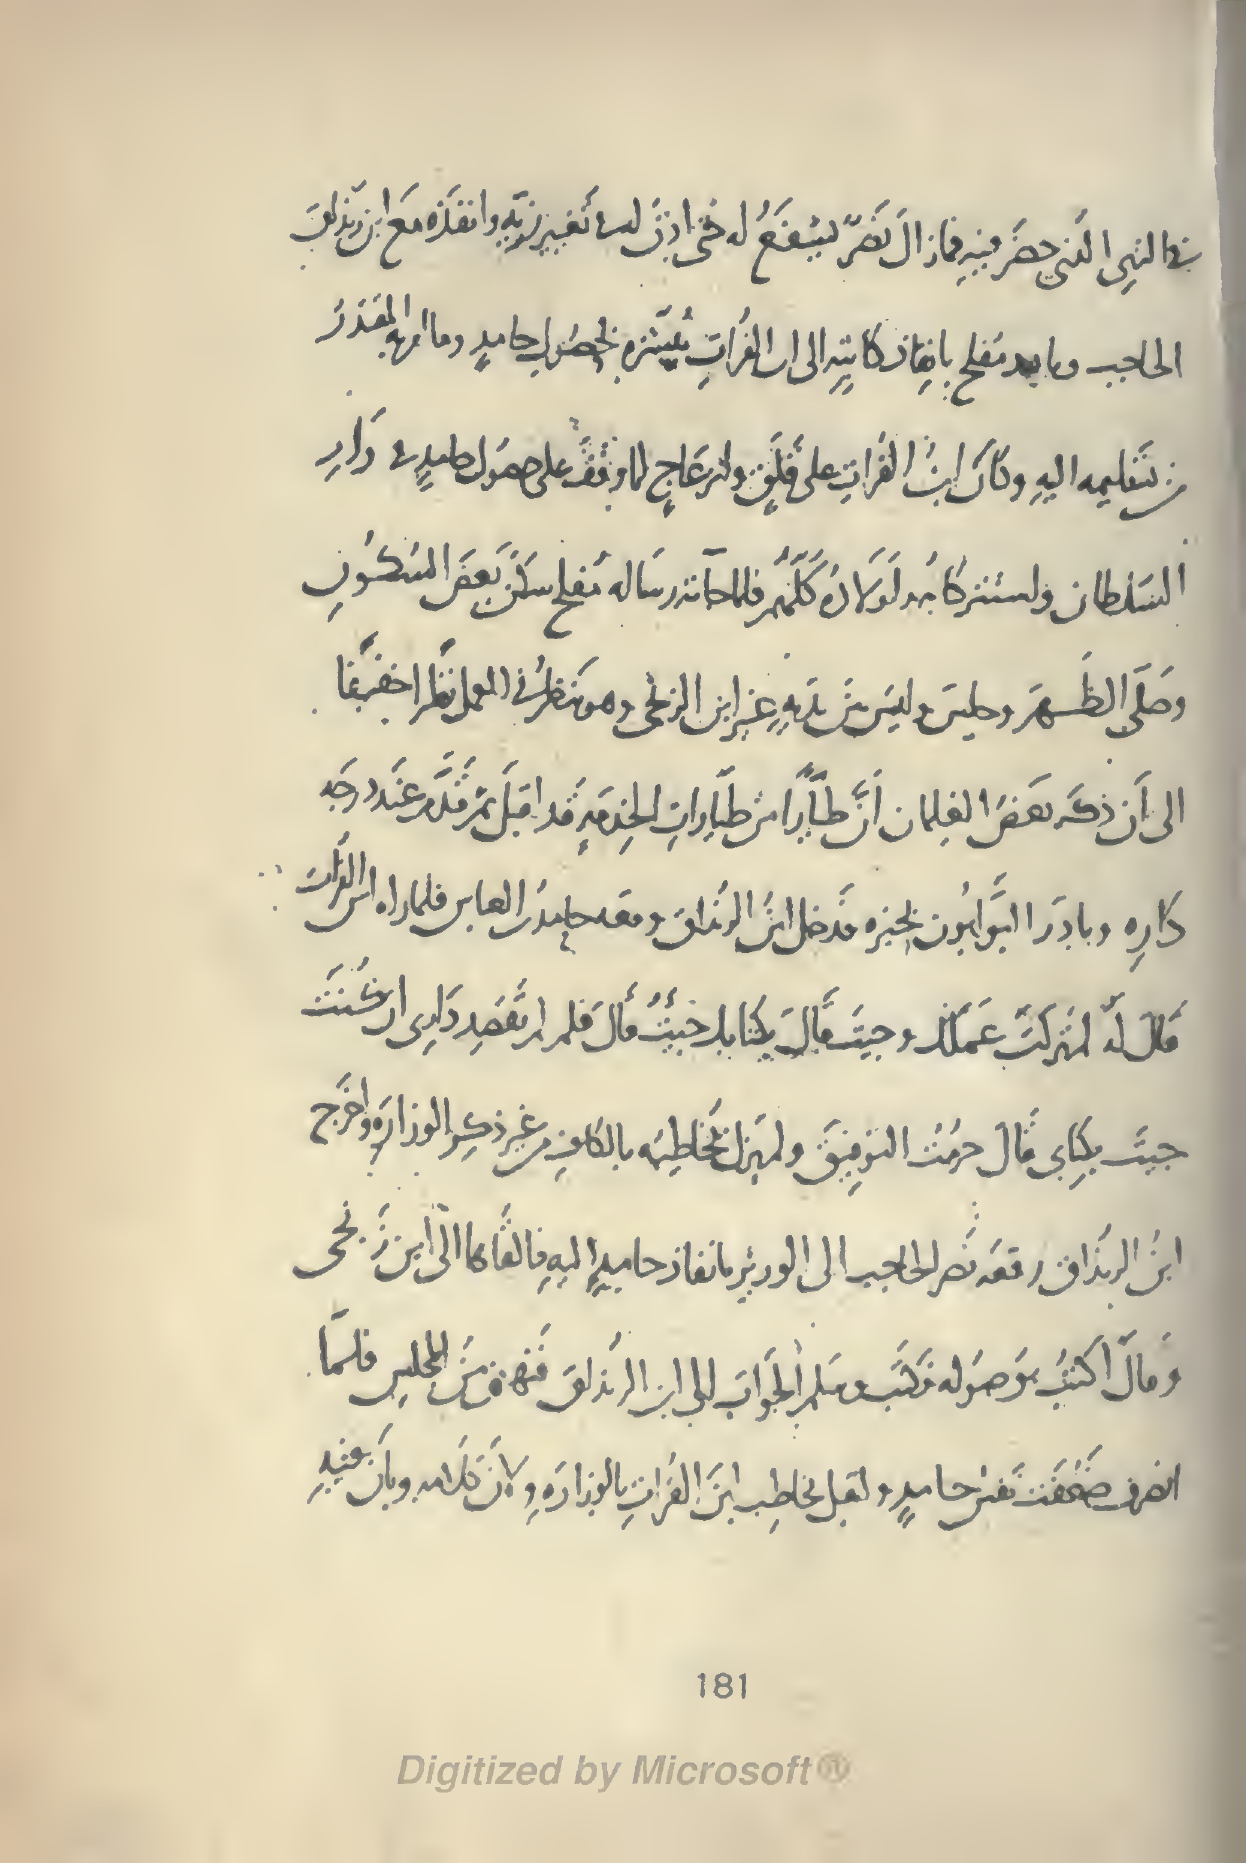 في الزي الذي حضر فيه فما زال نصر يشفع له حتى اذن له في تغيير زيه وانفذه مع ابن رنداق
الحاجب مفلح بانفاذ كاتبه الى ابن الفرات يبشره بحصول حامد وما امر به المقتدر
من تسليمه اليه وكان ابن الفرات على قلق وانزعاج لما وقف على حصول حامد في دار
السلطان واستتر كاتبه اولاده كلهم فلما جآته رساله مفلح سكن بعض السكون
وصلى الظهر وجلس وليس بين يديه غير ابن الزنجي وهو ينظر في العمل نظرا خفيفا
الى أن ذكر بعض الغلمان أن طيارا من طيارات الخدمه قد اقبل ثم قدم عند درجه
داره وبادر البوابون بخبره فدخل ابن الرنداق ومعه حامد بن العباس فلما راه ابن الفرات
قال له لم تركت عملك وجيت قال بكتابك جيت قال فلم لم تقصد داري ان كنت
جيت بكتابي قال حرمت التوفيق ولم يزل يخاطبه بالكاف من غير ذكر الوزاره واخرج
ابن الرنداق رقعه نصر الحاجب الى الوزير بانفاذ حامد اليه فالقاها الى ابن زنجي
وقال اكتب بوصوله فكتب وسلم الجواب الى ابن الرنداق فنهض من المجلس فلما
انصرف ضعفت نفس حامد واقبل يخاطب ابن الفرات بالوزاره ولان كلامه وبان عنده
181
Digitized by Microsoft®